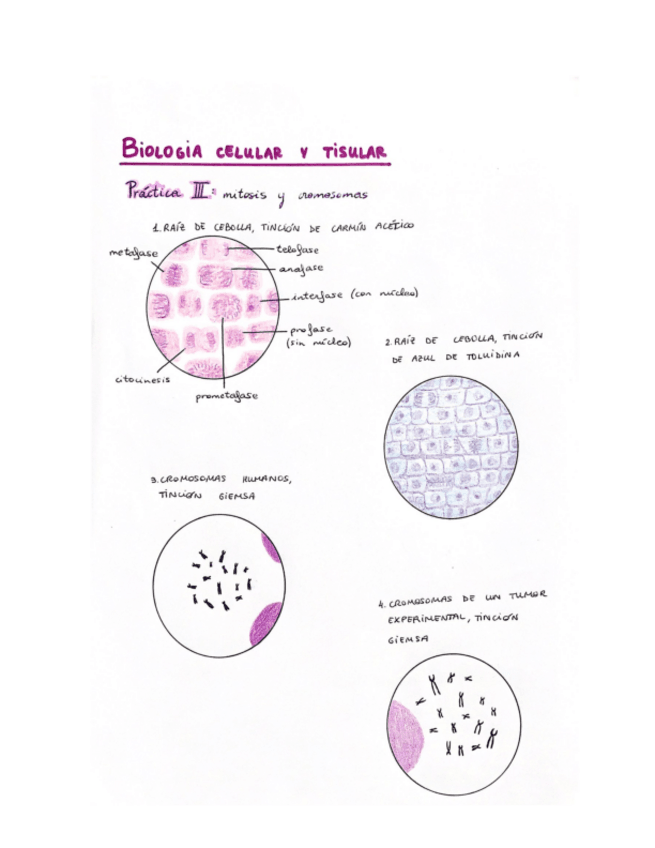 BiOLOGiA CELULAR Y TiSULAR
Práctica III: mitosis y cromosomas
1. RAÍZ DE CEBOLLA, TINCIÓN DE CARMÍN ACÉTICO
metafase
telofase
anafase
interfase (con núcleo)
profase
(sin núcleo)
citocinesis
prometafase
2. RAÍZ DE CEBOLLA, TINCIÓN
DE AZUL DE TOLUIDINA
3. CROMOSOMAS HUMANOS,
TINCIÓN GIEMSA
4. CROMOSOMAS DE UN TUMOR
EXPERIMENTAL, TINCIÓN
GIEMSA